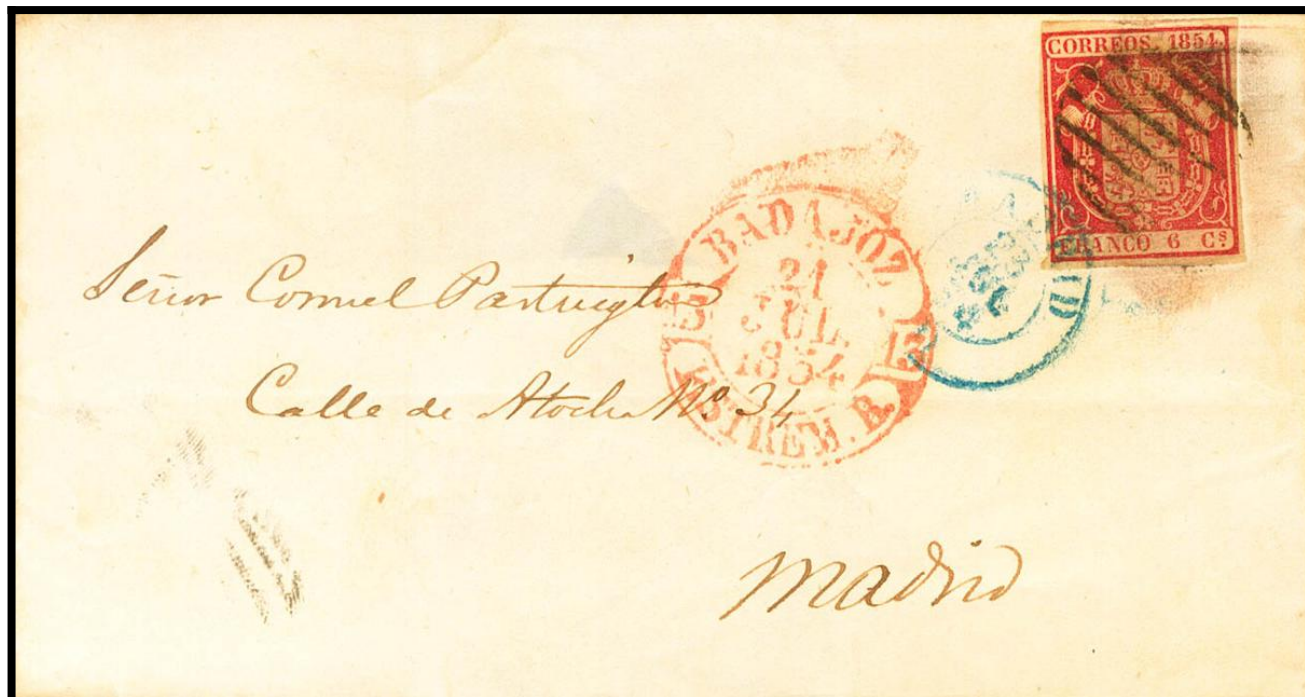 CORREOS 1854
FRANCO 6 Cs
BADAJOZ
21
JUL
1854
5 5
ESTREM. B.
Señor Cornel Partrington
Calle de Atocha No 34
Madrid